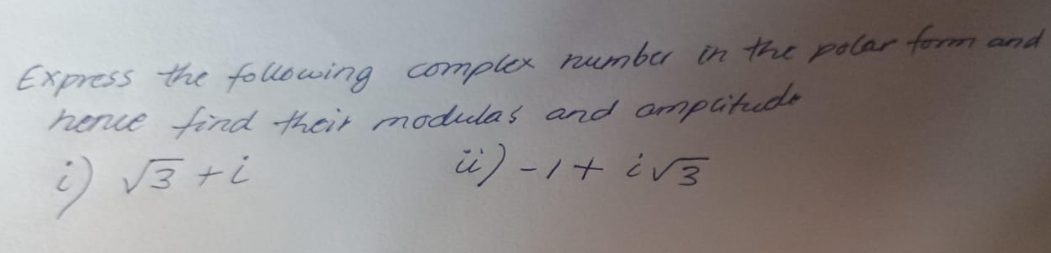 Express the following complex number in the polar form and
hence find their modulas and amplitude
i) √3 + i ii) -1 + i√3